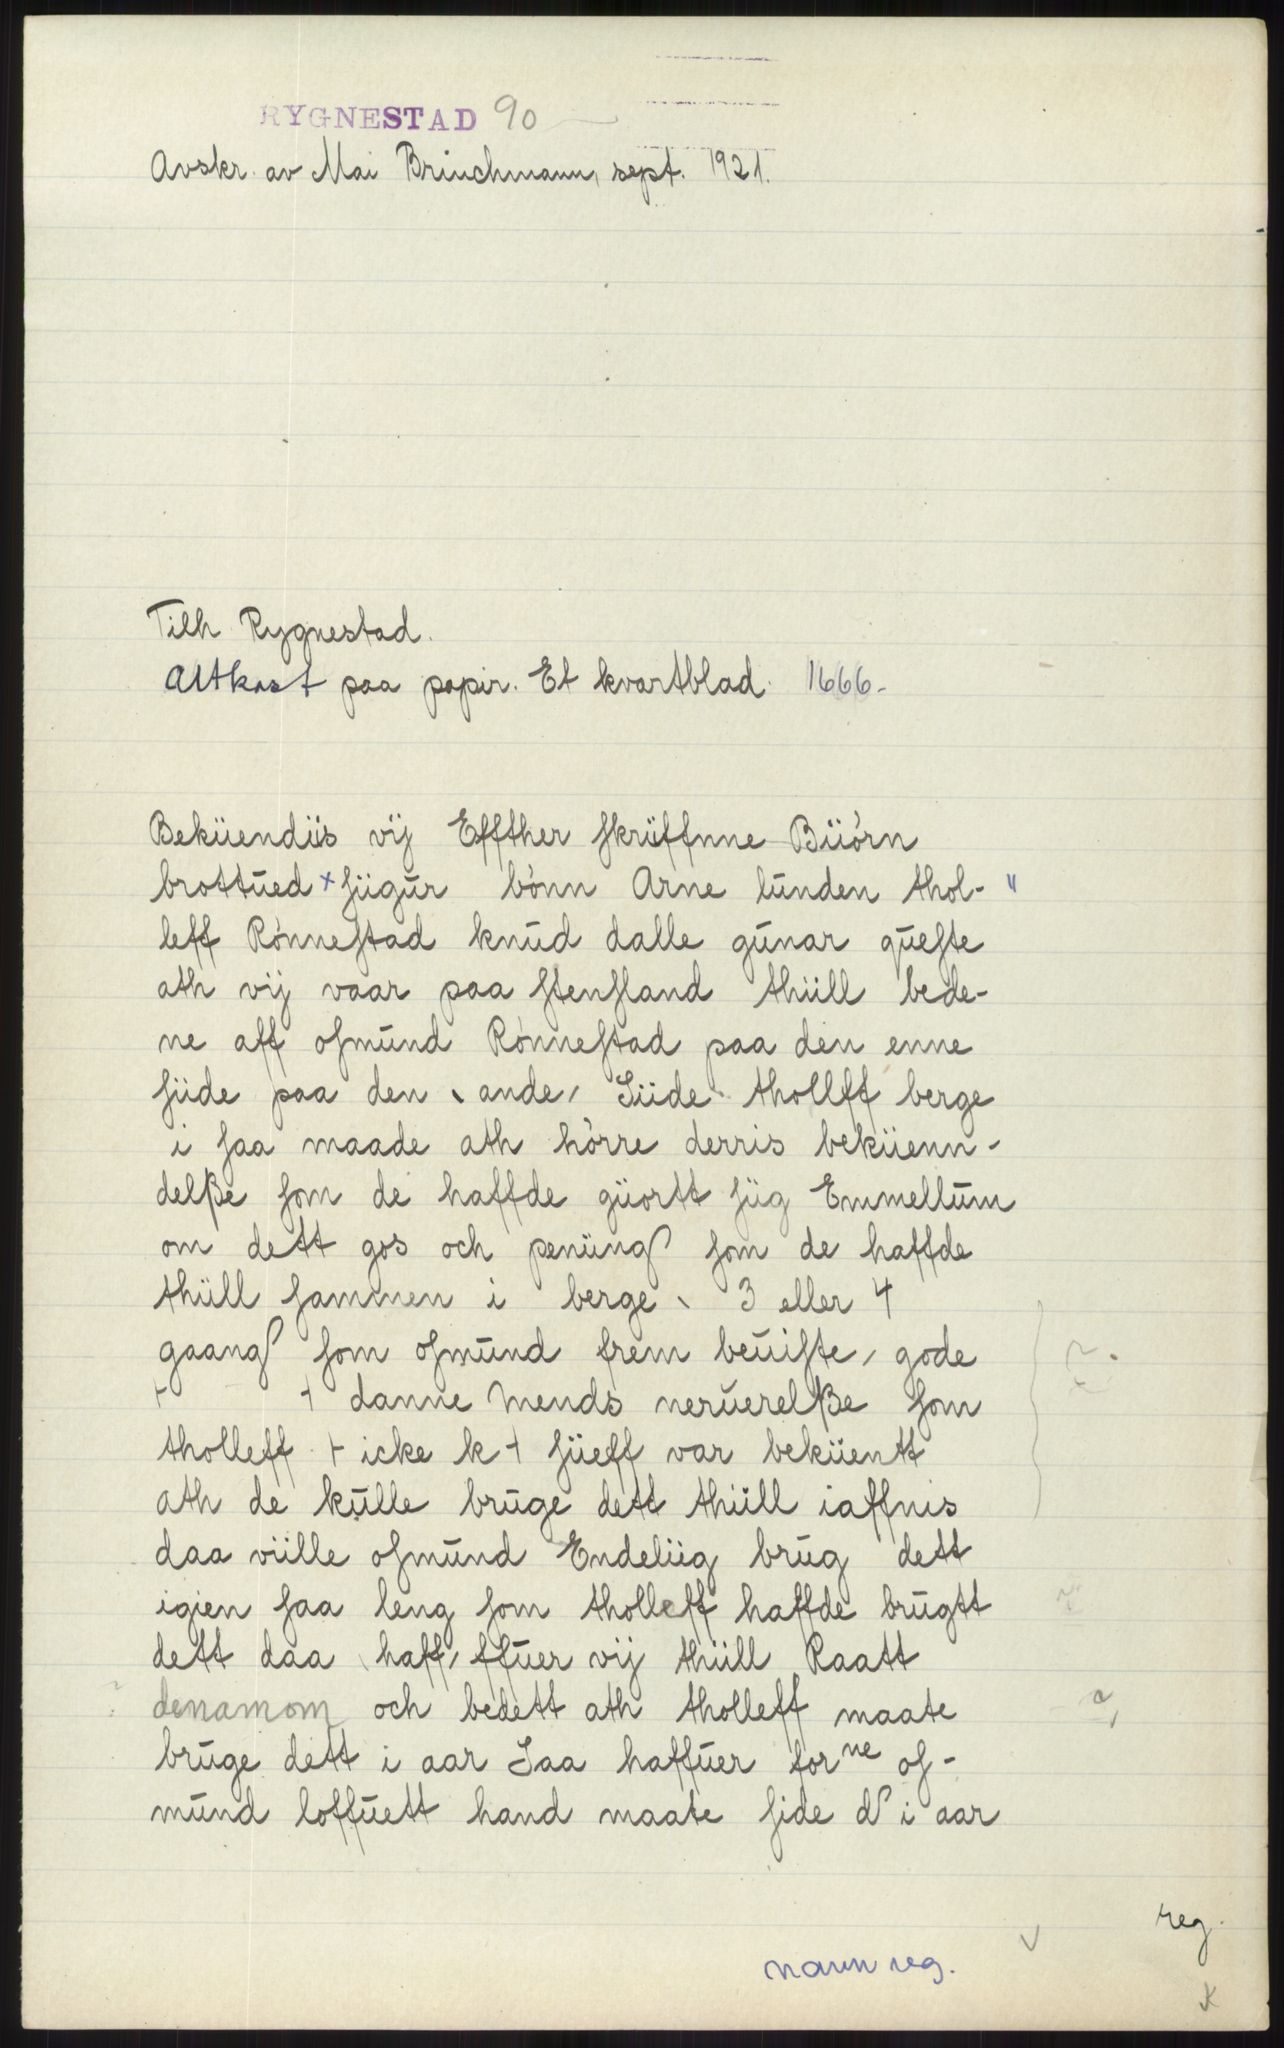 RYGNESTAD 90
Avskr. av Mai Brinchmann, sept. 1921.
Tilh Rygnestad.
Utkast paa papir. Et kvartblad. 1666.
Beküendiis vij Effther ſkrüffnne Büörn
brottued x ſügur bönn Arne lunden thol- "
leff Rönneſtad knud dalle gunar queſte
ath vij vaar paa ſtenſland thüll bede-
ne aff oſmund Rönneſtad paa den enne
ſüde paa den ande Süde thollff berge
i ſaa maade ath hörre derris beküenn-
delße ſom de haffde güortt ſüg Emmellum
om dett gos och penüng ſom de haffde
thüll ſammen i berge 3 eller 4
gaang ſom oſmund frem beuiſte, gode
+ + danne mends neruerelße ſom
tholleff + icke k + ſüeff var beküentt
ath de kulle bruge dett thüll iaffnis
daa viille oſmund Endeliig brug dett
igien ſaa leng ſom tholleff haffde brugtt
dett daa haff, ffuer vij thüll Raatt
? denamom och bedett ath tholleff maate
bruge dett i aar Saa haffuer for ne oſ-
mund loffuett hand maate ſide i aar
reg.
navn reg.